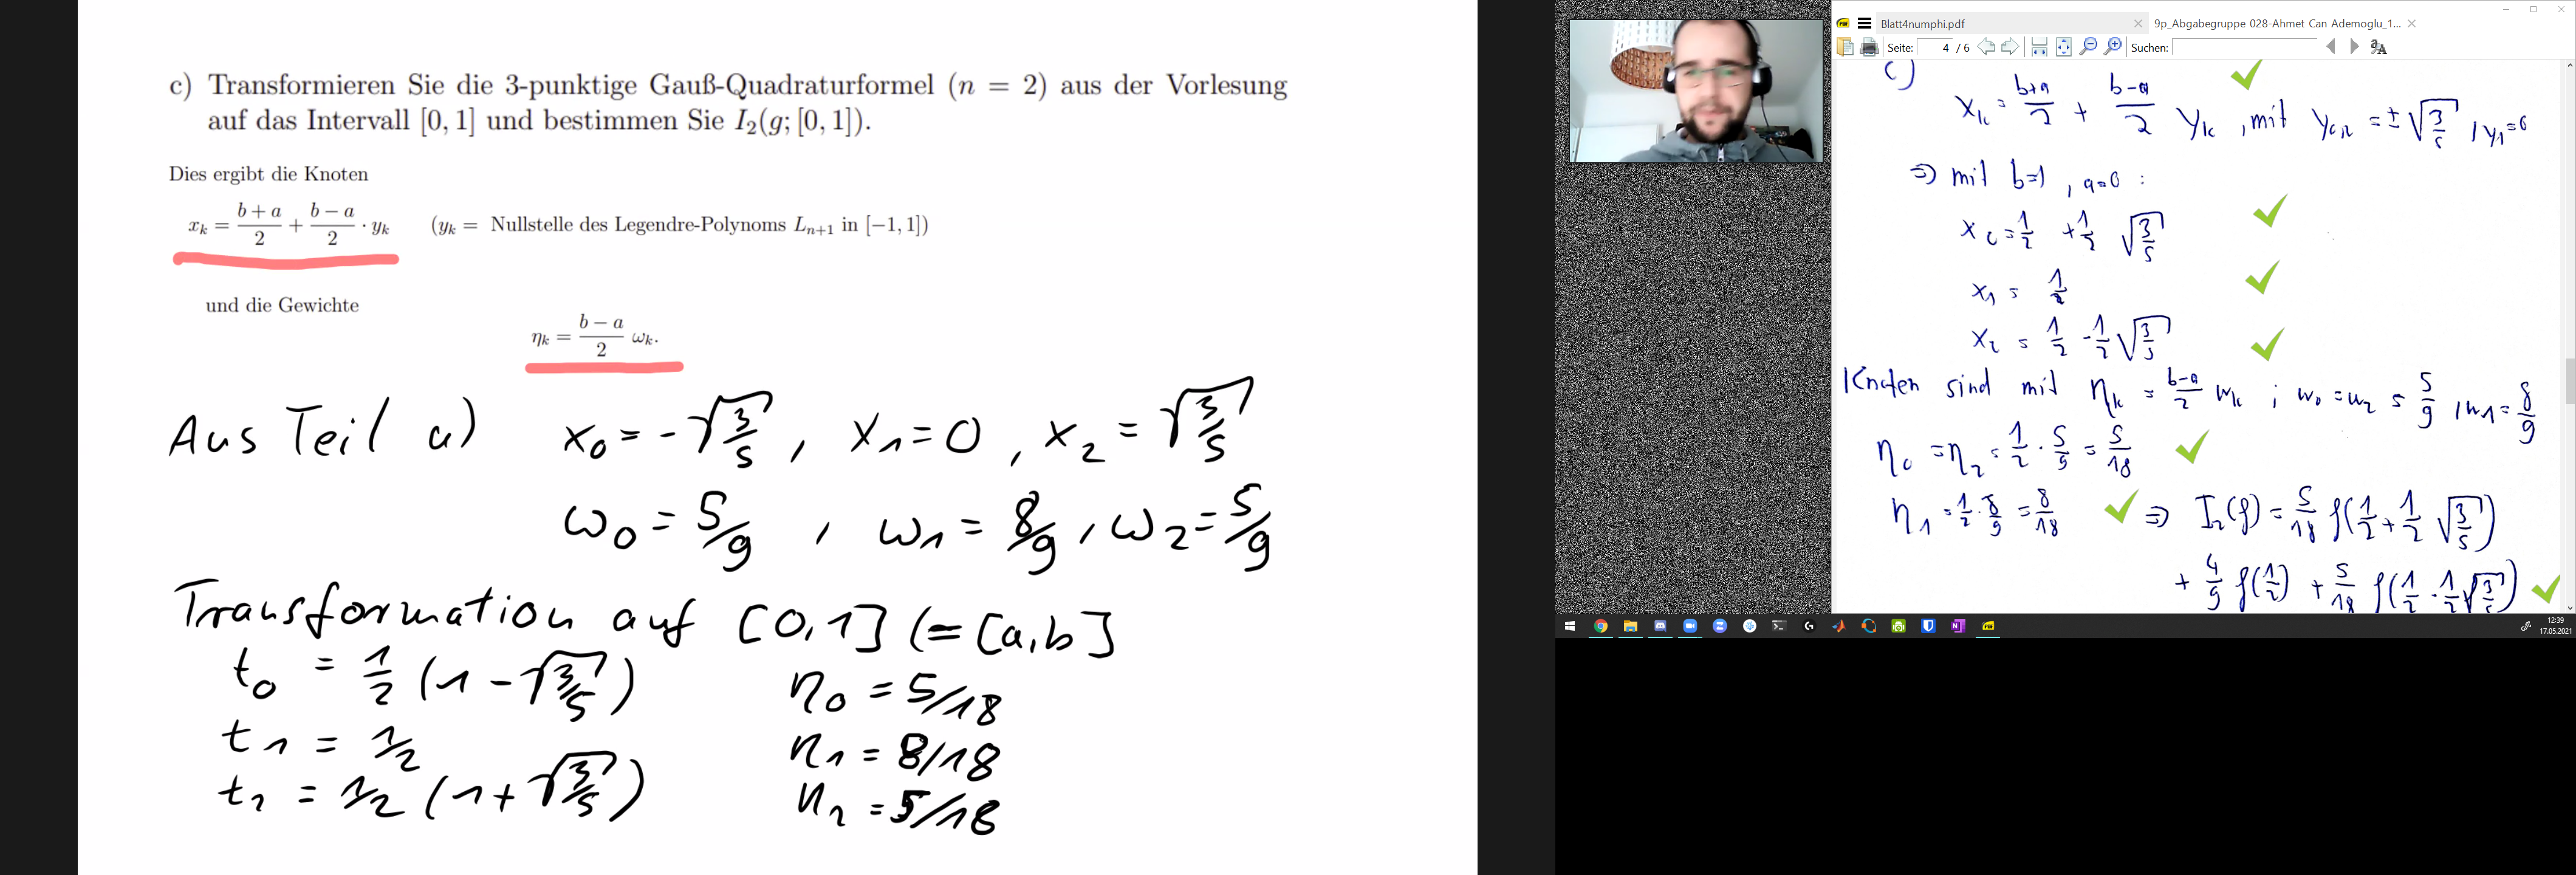 c) Transformieren Sie die 3-punktige Gauß-Quadraturformel (n = 2) aus der Vorlesung
auf das Intervall [0, 1] und bestimmen Sie I₂(g; [0, 1]).
Dies ergibt die Knoten
xₖ = (b + a)/2 + (b − a)/2 · yₖ (yₖ = Nullstelle des Legendre-Polynoms Lₙ₊₁ in [−1, 1])
und die Gewichte
ηₖ = (b − a)/2 ωₖ.
Aus Teil a) x₀ = -√(3/5) , x₁ = 0 , x₂ = √(3/5)
ω₀ = 5/9 , ω₁ = 8/9 , ω₂ = 5/9
Transformation auf [0,1] (= [a,b]
t₀ = 1/2 (1 - √(3/5)) η₀ = 5/18
t₁ = 1/2 η₁ = 8/18
t₂ = 1/2 (1 + √(3/5)) η₂ = 5/18
Blatt4numphi.pdf
9p_Abgabegruppe 028-Ahmet Can Ademoglu_1...
Seite: 4 / 6 Suchen:
c)
xₖ = (b+a)/2 + (b-a)/2 yₖ , mit y₀,₂ = ±√(3/5) , y₁=0
⇒ mit b=1 , a=0 :
x₀ = 1/2 + 1/2 √(3/5)
x₁ = 1/2
x₂ = 1/2 - 1/2 √(3/5)
Knoten sind mit ηₖ = (b-a)/2 wₖ ; w₀ = w₂ = 5/9 , w₁ = 8/9
η₀ = η₂ = 1/2 · 5/9 = 5/18
η₁ = 1/2 · 8/9 = 8/18 ⇒ I₂(f) = 5/18 f(1/2 + 1/2 √(3/5))
+ 4/9 f(1/2) + 5/18 f(1/2 - 1/2 √(3/5))
12:39
17.05.2021